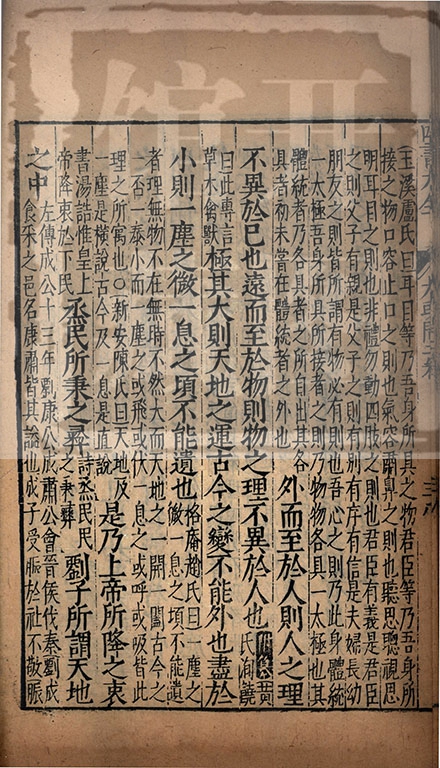 玉溪盧氏曰耳目等乃吾身所具之物君臣等乃吾身所
接之物口容止口之則也氣容肅鼻之則也聽思聰視思
明耳目之則也非禮勿動四肢之則也君臣有義是君臣
之則父子有親是父子之則有別有序有信是夫婦長幼
朋友之則皆所謂有物必有則也吾心之則乃此身體統
一太極吾身所具所接者之則乃物物各具一太極也其
體統者乃各具者之所自出其各
具者初未嘗在體統者之外也
外而至於人則人之理
不異於已也遠而至於物則物之理不異於人也
附纂黃
氏洵饒
曰此專言
草木禽獸
極其大則天地之運古今之變不能外也盡於
小則一塵之微一息之頃不能遺也
格庵趙氏曰一塵之
微一息之頃不能遺
者理無物不在無時不然大而天地之一開一闔古今之
一否一泰小而一塵之或飛或伏一息之或呼或吸皆此
理之所寓也○新安陳氏曰天地及
一塵是橫說古今及一息是直說
是乃上帝所降之衷
書湯誥惟皇上
帝降衷於下民
烝民所秉之彝
詩烝民民
之秉彝
劉子所謂天地
之中
左傳成公十三年劉康公成肅公會晉侯伐秦劉成
食采之邑名康肅皆其諡也成子受脤於社不敬脤